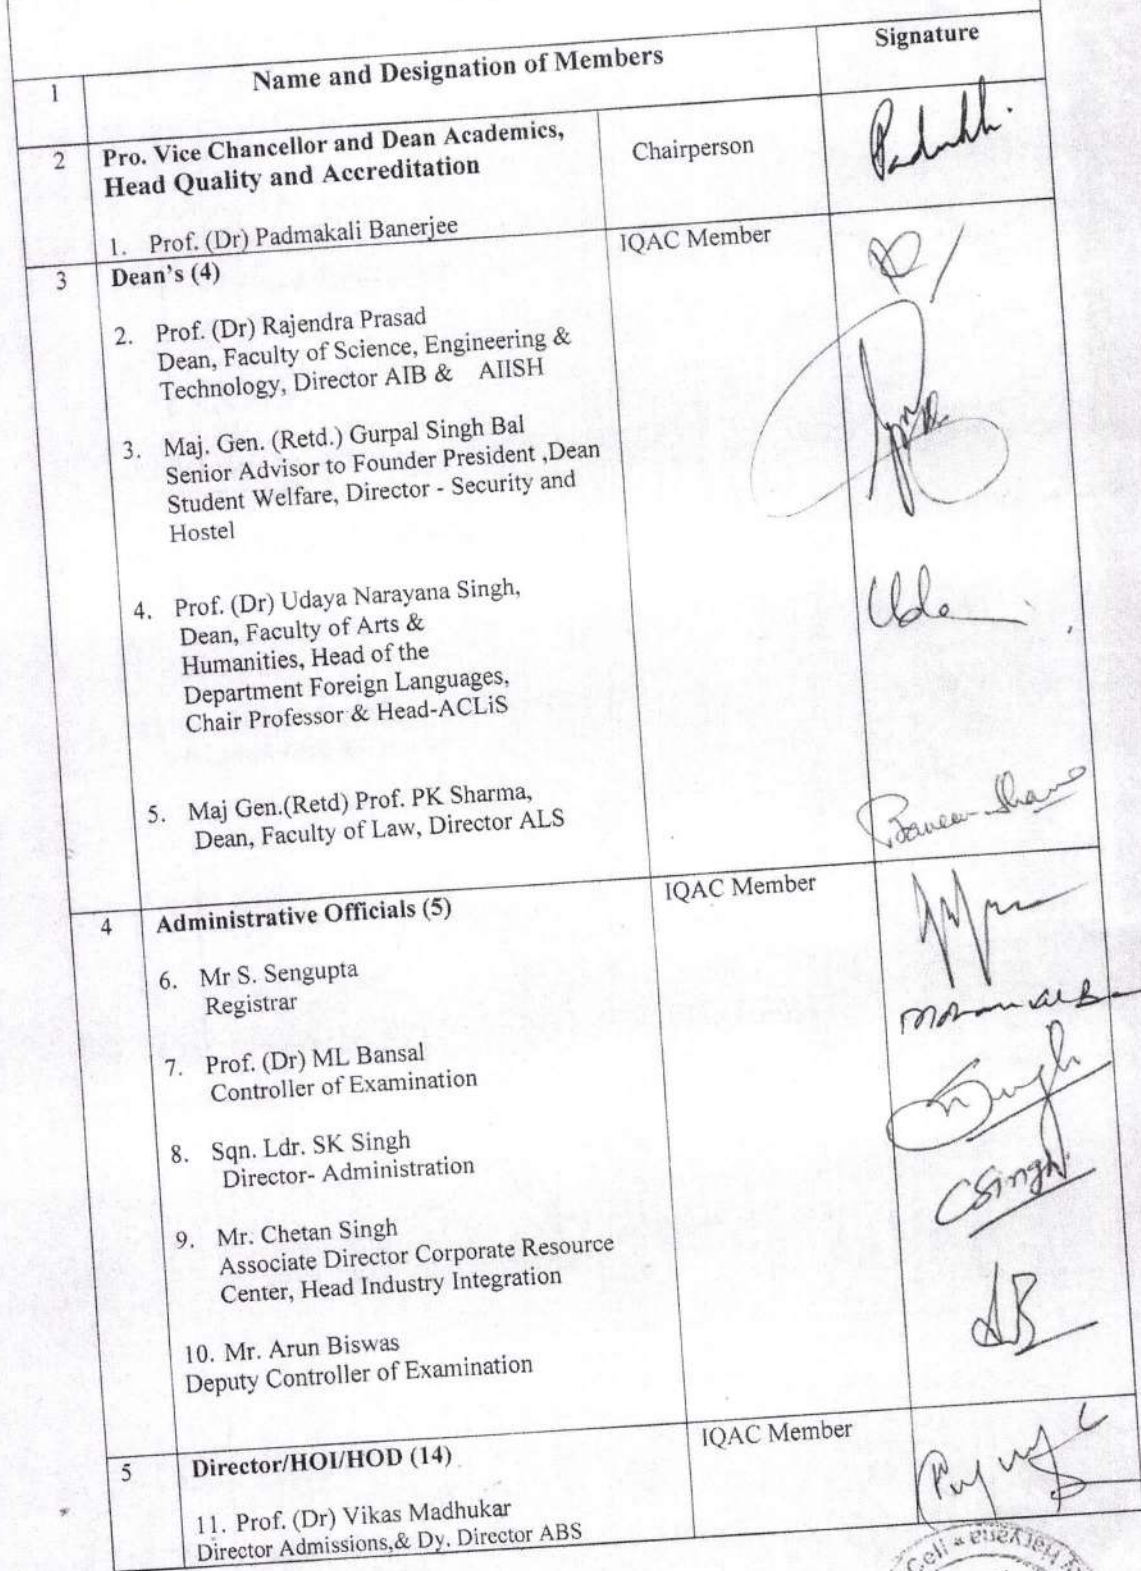 1 Name and Designation of Members Signature
2 Pro. Vice Chancellor and Dean Academics, Chairperson
Head Quality and Accreditation
1. Prof. (Dr) Padmakali Banerjee
3 Dean's (4) IQAC Member
2. Prof. (Dr) Rajendra Prasad
Dean, Faculty of Science, Engineering &
Technology, Director AIB & AIISH
3. Maj. Gen. (Retd.) Gurpal Singh Bal
Senior Advisor to Founder President ,Dean
Student Welfare, Director - Security and
Hostel
4. Prof. (Dr) Udaya Narayana Singh,
Dean, Faculty of Arts &
Humanities, Head of the
Department Foreign Languages,
Chair Professor & Head-ACLiS
5. Maj Gen.(Retd) Prof. PK Sharma,
Dean, Faculty of Law, Director ALS
4 Administrative Officials (5) IQAC Member
6. Mr S. Sengupta
Registrar
7. Prof. (Dr) ML Bansal
Controller of Examination
8. Sqn. Ldr. SK Singh
Director- Administration
9. Mr. Chetan Singh CSingh
Associate Director Corporate Resource
Center, Head Industry Integration
10. Mr. Arun Biswas AB
Deputy Controller of Examination
5 Director/HOI/HOD (14) IQAC Member
11. Prof. (Dr) Vikas Madhukar
Director Admissions,& Dy. Director ABS
Cell * Haryana